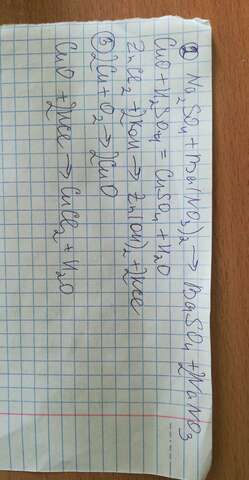 ① Na₂SO₄ + Ba(NO₃)₂ → BaSO₄ + 2NaNO₃
CuO + H₂SO₄ = CuSO₄ + H₂O
ZnCl₂ + 2KOH → Zn(OH)₂ + 2KCl
⑤ 2Cu + O₂ → 2CuO
CuO + 2HCl → CuCl₂ + H₂O